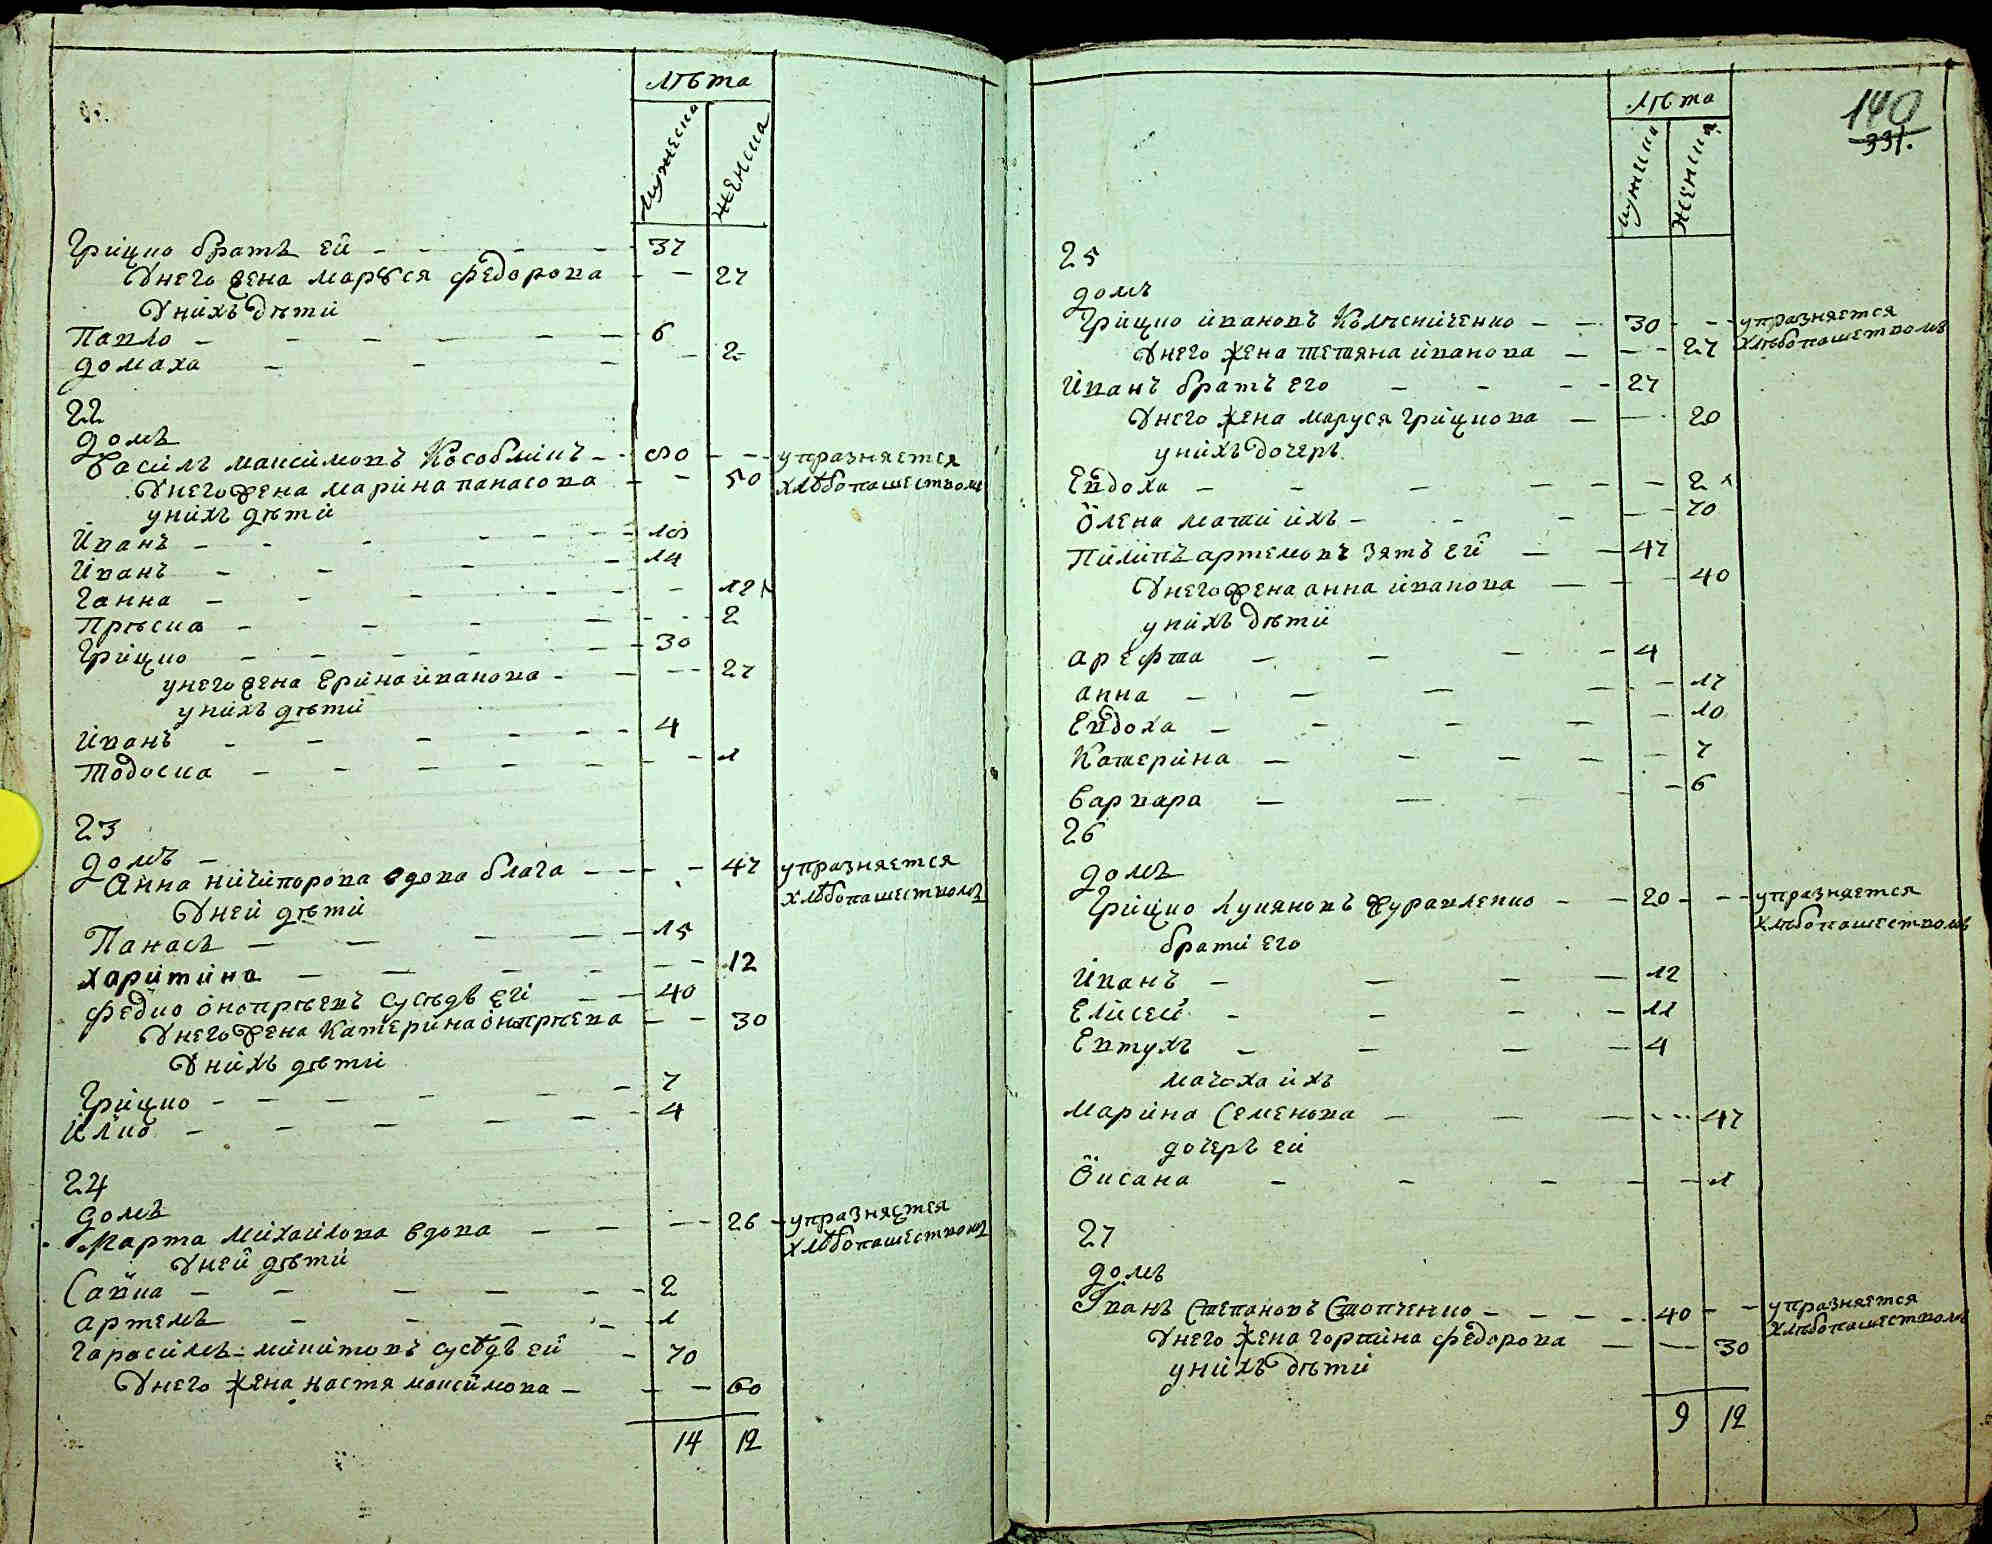 лѣта
мужеска
женска
Грицко братъ ей - - - - 37
У него жена Маруся Федорова - - 27
У нихъ дѣти
Павло - - - - - - 6
домаха - - - - 2
22
домъ
Василь Максимовъ - - 50 - - упразняется
У него жена Марина Панасова - - 50 хлѣбопашествомъ
у нихъ дѣти
Иванъ - - - - - -
Иванъ - - - - 14
Ганна - - - - - - 12
Прѣска - - - - - - 2
Грицко - - - - - 30
у него жена Ерина Иванова - - - 27
у нихъ дѣти
Иванъ - - - - - - 4
Тодоска - - - - - - - - 1
23
домъ -
Анна Ничипорова вдова - - - - 47 упразняется
хлѣбопашествомъ
У ней дѣти
Панасъ - - - - - 15
харитина - - - - - - 12
Федко Оноприевъ сусѣдъ ей - - 40
У него жена Катерина Оноприева - - 30
У нихъ дѣти
Грицко - - - - - - 7
Илко - - - - - - 4
24
домъ
Марта Михайлова вдова - - - - 26 - упразняется
хлѣбопашествомъ
У ней дѣти
Савка - - - - - - 2
артемъ - - - - - 1
Гарасимъ Микитовъ сусѣдъ ей - 70
У него жена Настя Максимова - - - 60
14 12
140
331.
лѣта
мужска
женска
25
домъ
Грицко Ивановъ Колѣсниченко - - 30 - - упразняется
У него жена Тетяна Иванова - - - 27 хлѣбопашествомъ
Иванъ братъ его - - - - 27
У него жена Маруся Грицкова - - 20
у нихъ дочерь
Евдоха - - - - - - 2
Олена мати ихъ - - - - - 70
Пилипъ артемовъ зять ей - - 47
У него жена анна Иванова - - - 40
у нихъ дѣти
арефта - - - - 4
анна - - - - - 17
Евдоха - - - - - 10
Катерина - - - - - 7
Варвара - - - - 6
26
домъ
Грицко Лукяновъ Журавленко - - 20 - - - упразняется
хлѣбопашествомъ
брати его
Иванъ - - - - 12
Елисей - - - - 11
Евтухъ - - - - 4
мачоха ихъ
Марина Семенова - - - - - - 47
дочерь ей
Оксана - - - - - 1
27
домъ
Иванъ Степановъ Стопченко - - - - 40 - - упразняется
У него жена Горпина Федорова - - 30 хлѣбопашествомъ
у нихъ дѣти
9 12